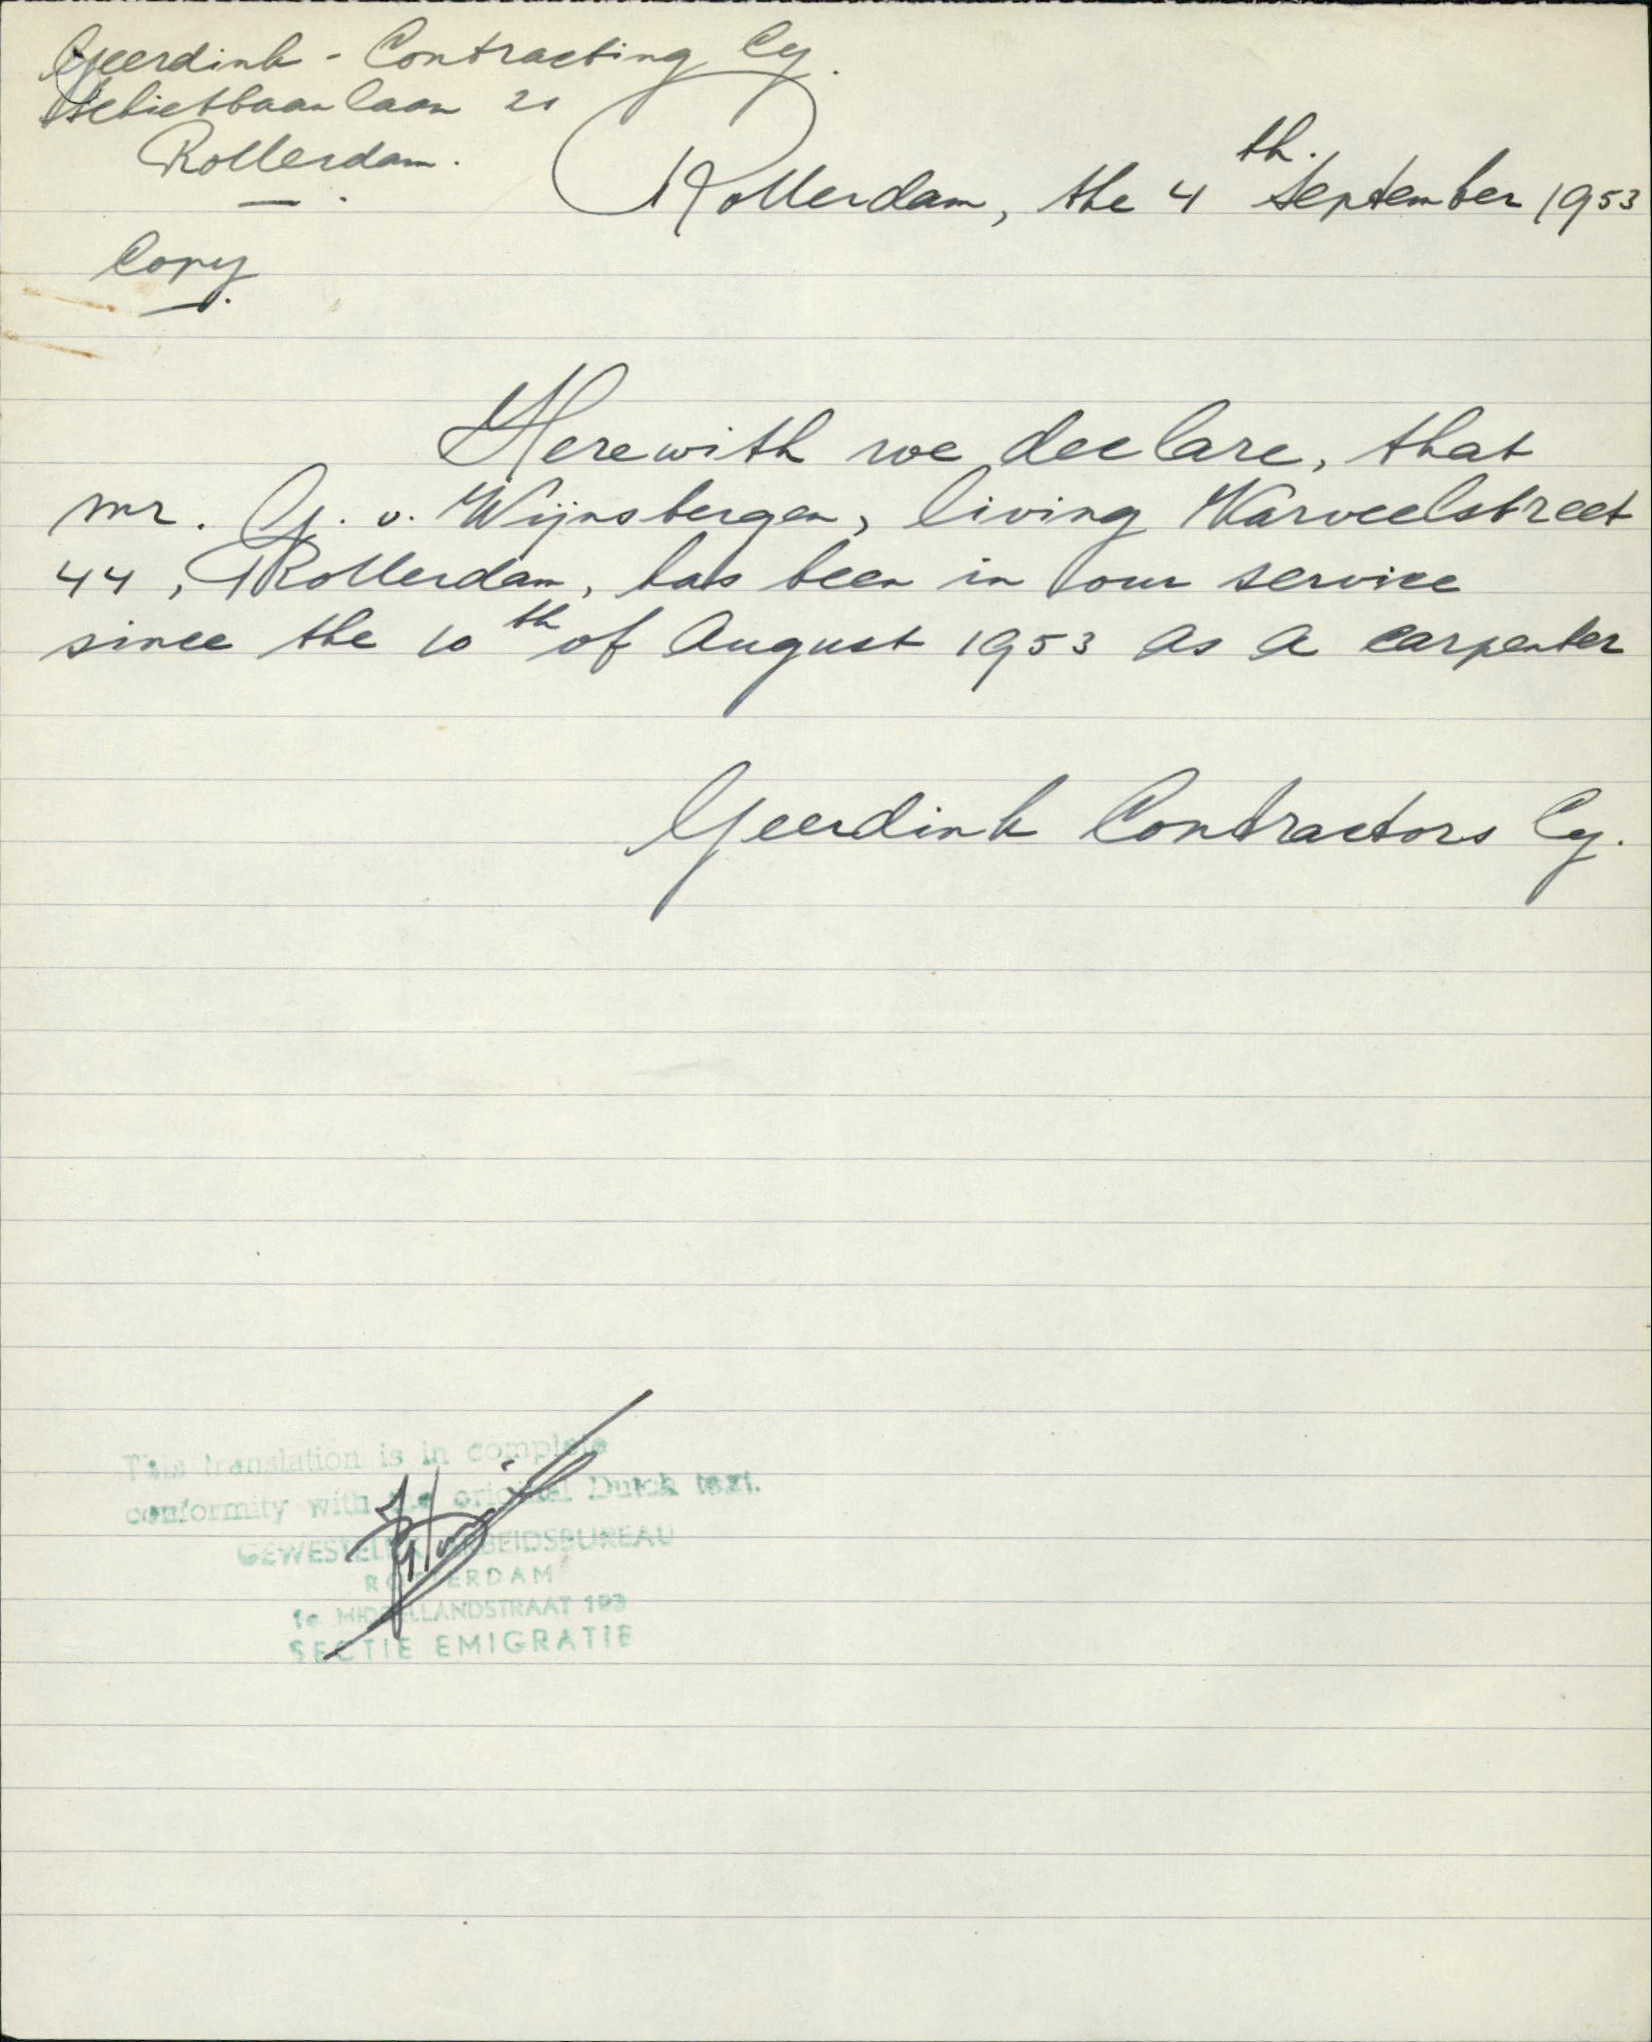 Geerdink - Contracting Cy.
Schietbaanlaan 20
Rotterdam.
Rotterdam, the 4th. September 1953
Copy.
Herewith we declare, that
mr. G. v. Wijnsbergen, living Warveelstreet
44, Rotterdam, has been in our service
since the 10th of August 1953 as a carpenter
Geerdink Contractors Cy.
This translation is in complete
conformity with the original Dutch text.
GEWESTELIJK ARBEIDSBUREAU
ROTTERDAM
1e MIDDELLANDSTRAAT 103
SECTIE EMIGRATIE